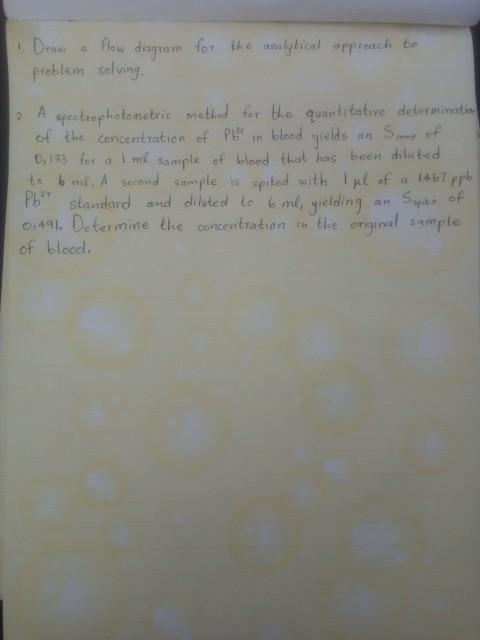 1. Draw a flow diagram for the analytical approach to
problem solving.
2. A spectrophotometric method for the quantitative determination
of the concentration of Pb²⁺ in blood yields an Ssamp of
0,133 for a 1 ml sample of blood that has been diluted
to 6 ml. A second sample is spited with 1 µl of a 1467 ppb
Pb²⁺ standard and diluted to 6 ml, yielding an Sspike of
0,491. Determine the concentration in the original sample
of blood.